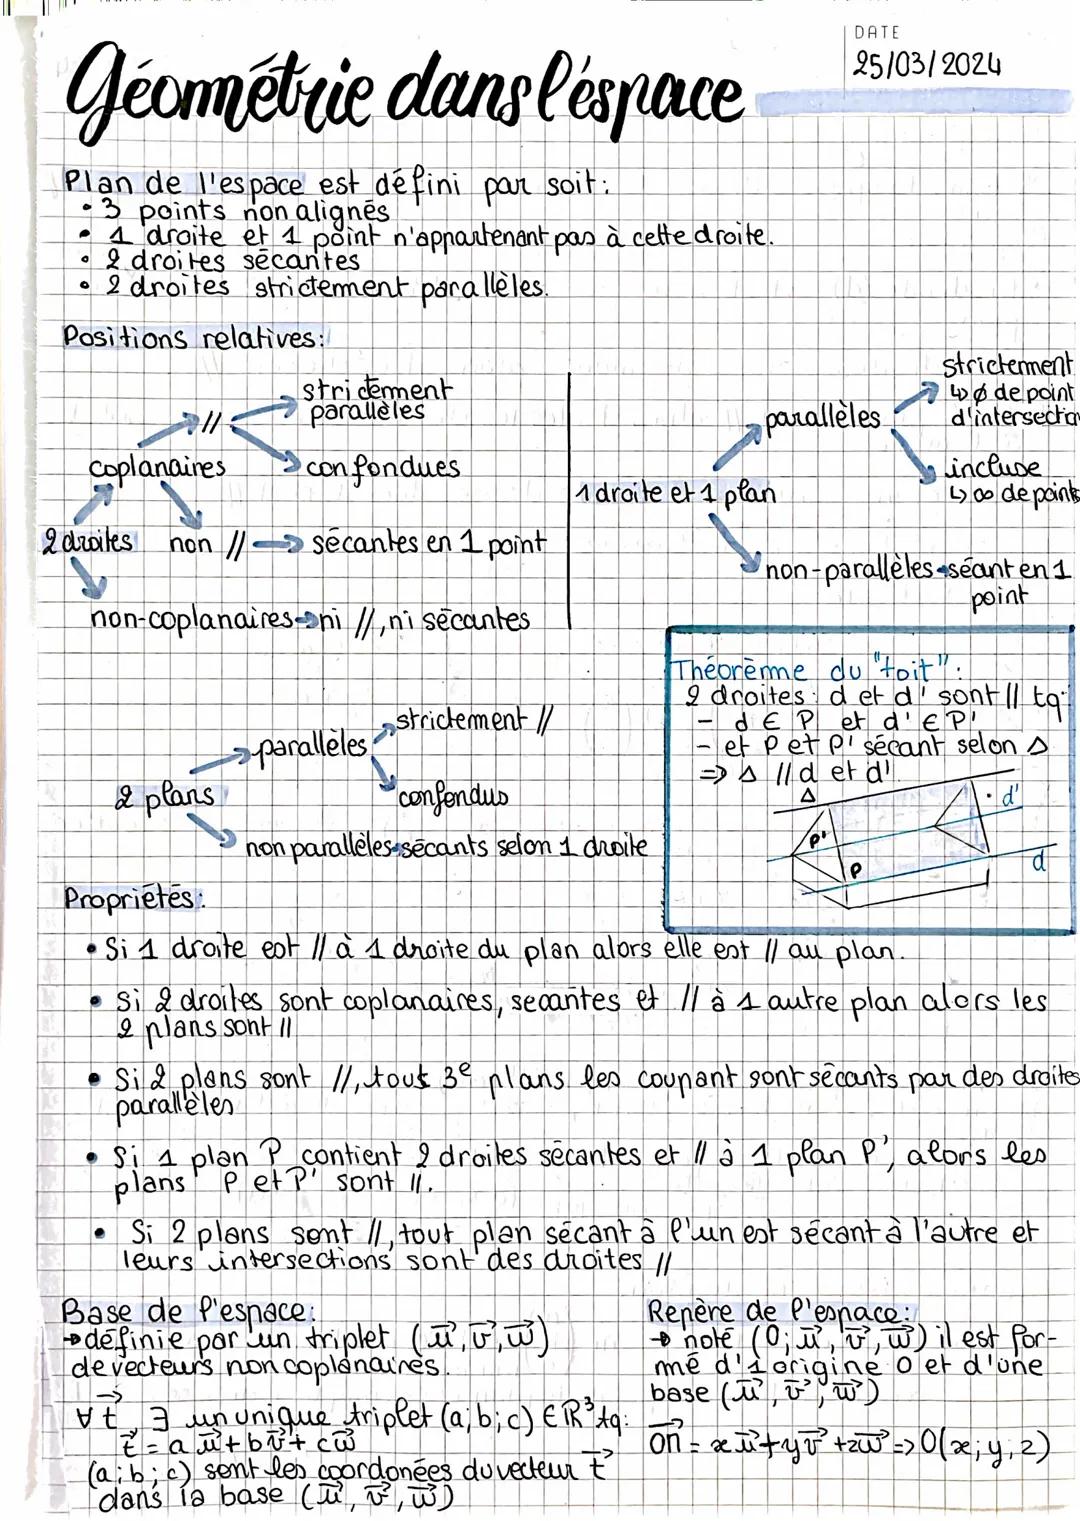 DATE
25/03/2024
Géométrie dans l'éspace
Plan de l'espace est défini par soit:
• 3 points non alignés
• 1 droite et 1 point n'appartenant pas à cette droite.
• 2 droites sécantes
• 2 droites strictement parallèles.
Positions relatives:
strictement
parallèles
//
coplanaires
confondues
2 droites
non // → sécantes en 1 point
non-coplanaires → ni //, ni sécantes
strictement
↳ ø de point
d'intersectio
parallèles
incluse
↳ ∞ de points
1 droite et 1 plan
non-parallèles → séant en 1
point
strictement //
parallèles
2 plans
confondus
non parallèles → sécants selon 1 droite
Théorème du "toit":
2 droites: d et d' sont // tq:
- d ∈ P et d' ∈ P'
- et P et P' sécant selon Δ
=> Δ // d et d'
Δ
d'
P'
P
d
Propriétés:
• Si 1 droite est // à 1 droite du plan alors elle est // au plan.
• Si 2 droites sont coplanaires, secantes et // à 1 autre plan alors les
2 plans sont //
• Si 2 plans sont //, tout 3e plans les coupant sont sécants par des droites
parallèles
• Si 1 plan P contient 2 droites sécantes et // à 1 plan P', alors les
plans P et P' sont //.
• Si 2 plans sont //, tout plan sécant à l'un est sécant à l'autre et
leurs intersections sont des droites //
Base de l'espace:
→ définie par un triplet (u⃗, v⃗, w⃗)
de vecteurs non coplanaires.
∀ t⃗, ∃ un unique triplet (a; b; c) ∈ ℝ³ tq:
t⃗ = a u⃗ + b v⃗ + c w⃗
(a; b; c) sont les coordonées du vecteur t⃗
dans la base (u⃗, v⃗, w⃗)
Repère de l'espace:
→ noté (O; u⃗, v⃗, w⃗) il est for-
mé d'1 origine O et d'une
base (u⃗, v⃗, w⃗)
O͞n = x u⃗ + y v⃗ + z w⃗ => O(x; y; z)